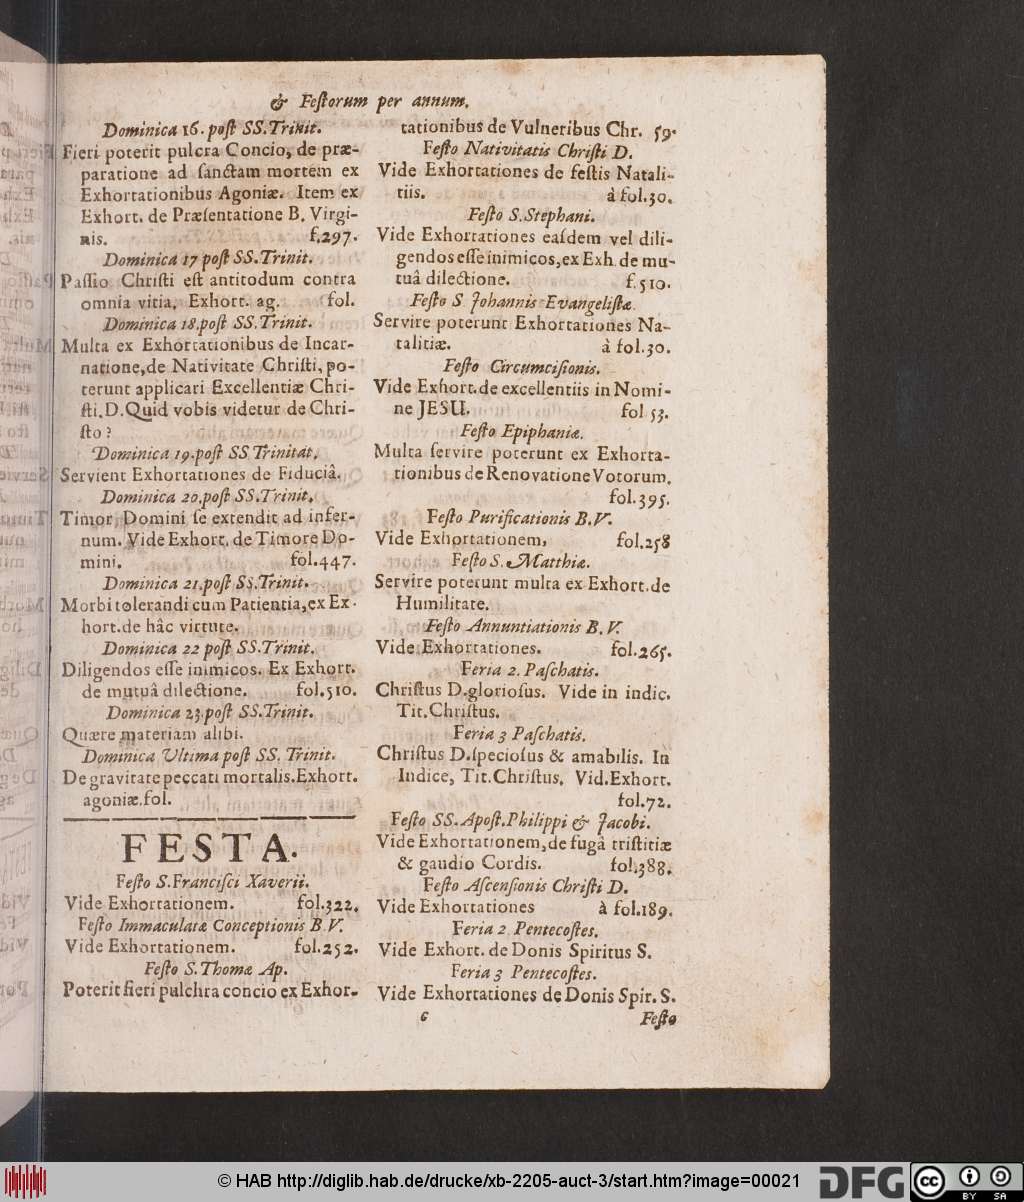 & Feſtorum per annum.
Dominica 16. poſt SS. Trinit.
Fieri poterit pulcra Concio, de præ-
paratione ad ſanctam mortem ex
Exhortationibus Agoniæ. Item ex
Exhort. de Præſentatione B. Virgi-
nis. f.297.
Dominica 17 poſt SS. Trinit.
Paſſio Chriſti eſt antitodum contra
omnia vitia, Exhort. ag. fol.
Dominica 18. poſt SS. Trinit.
Multa ex Exhortationibus de Incar-
natione, de Nativitate Chriſti, po-
terunt applicari Excellentiæ Chri-
ſti. D. Quid vobis videtur de Chri-
ſto?
Dominica 19. poſt SS Trinitat.
Servient Exhortationes de Fiduciâ.
Dominica 20. poſt SS. Trinit.
Timor Domini ſe extendit ad infer-
num. Vide Exhort. de Timore Do-
mini. fol.447.
Dominica 21. poſt SS. Trinit.
Morbi tolerandi cum Patientia, ex Ex-
hort. de hâc virtute.
Dominica 22 poſt SS. Trinit.
Diligendos eſſe inimicos. Ex Exhort.
de mutuâ dilectione. fol.510.
Dominica 23. poſt SS. Trinit.
Quære materiam alibi.
Dominica Ultima poſt SS. Trinit.
De gravitate peccati mortalis. Exhort.
agoniæ. fol.
FESTA.
Feſto S. Franciſci Xaverii.
Vide Exhortationem. fol.322.
Feſto Immaculatæ Conceptionis B.V.
Vide Exhortationem. fol.252.
Feſto S. Thomæ Ap.
Poterit fieri pulchra concio ex Exhor-
tationibus de Vulneribus Chr. 59.
Feſto Nativitatis Chriſti D.
Vide Exhortationes de feſtis Natali-
tiis. à fol.30.
Feſto S. Stephani.
Vide Exhortationes eaſdem vel dili-
gendos eſſe inimicos, ex Exh. de mu-
tuâ dilectione. f.510.
Feſto S Johannis Evangeliſtæ.
Servire poterunt Exhortationes Na-
talitiæ. à fol.30.
Feſto Circumciſionis.
Vide Exhort. de excellentiis in Nomi-
ne JESU. fol 53.
Feſto Epiphaniæ.
Multa ſervire poterunt ex Exhorta-
tionibus de Renovatione Votorum.
fol.395.
Feſto Purificationis B.V.
Vide Exhortationem, fol.258
Feſto S. Matthiæ.
Servire poterunt multa ex Exhort. de
Humilitate.
Feſto Annuntiationis B. V.
Vide Exhortationes. fol.265.
Feria 2. Paſchatis.
Chriſtus D. glorioſus. Vide in indic.
Tit. Chriſtus.
Feria 3 Paſchatis.
Chriſtus D. ſpecioſus & amabilis. In
Indice, Tit. Chriſtus. Vid. Exhort.
fol.72.
Feſto SS. Apoſt. Philippi & Jacobi.
Vide Exhortationem, de fugâ triſtitiæ
& gaudio Cordis. fol.388.
Feſto Aſcenſionis Chriſti D.
Vide Exhortationes à fol.189.
Feria 2 Pentecoſtes.
Vide Exhort. de Donis Spiritus S.
Feria 3 Pentecoſtes.
Vide Exhortationes de Donis Spir. S.
c Feſto
© HAB http://diglib.hab.de/drucke/xb-2205-auct-3/start.htm?image=00021
DFG
cc BY SA